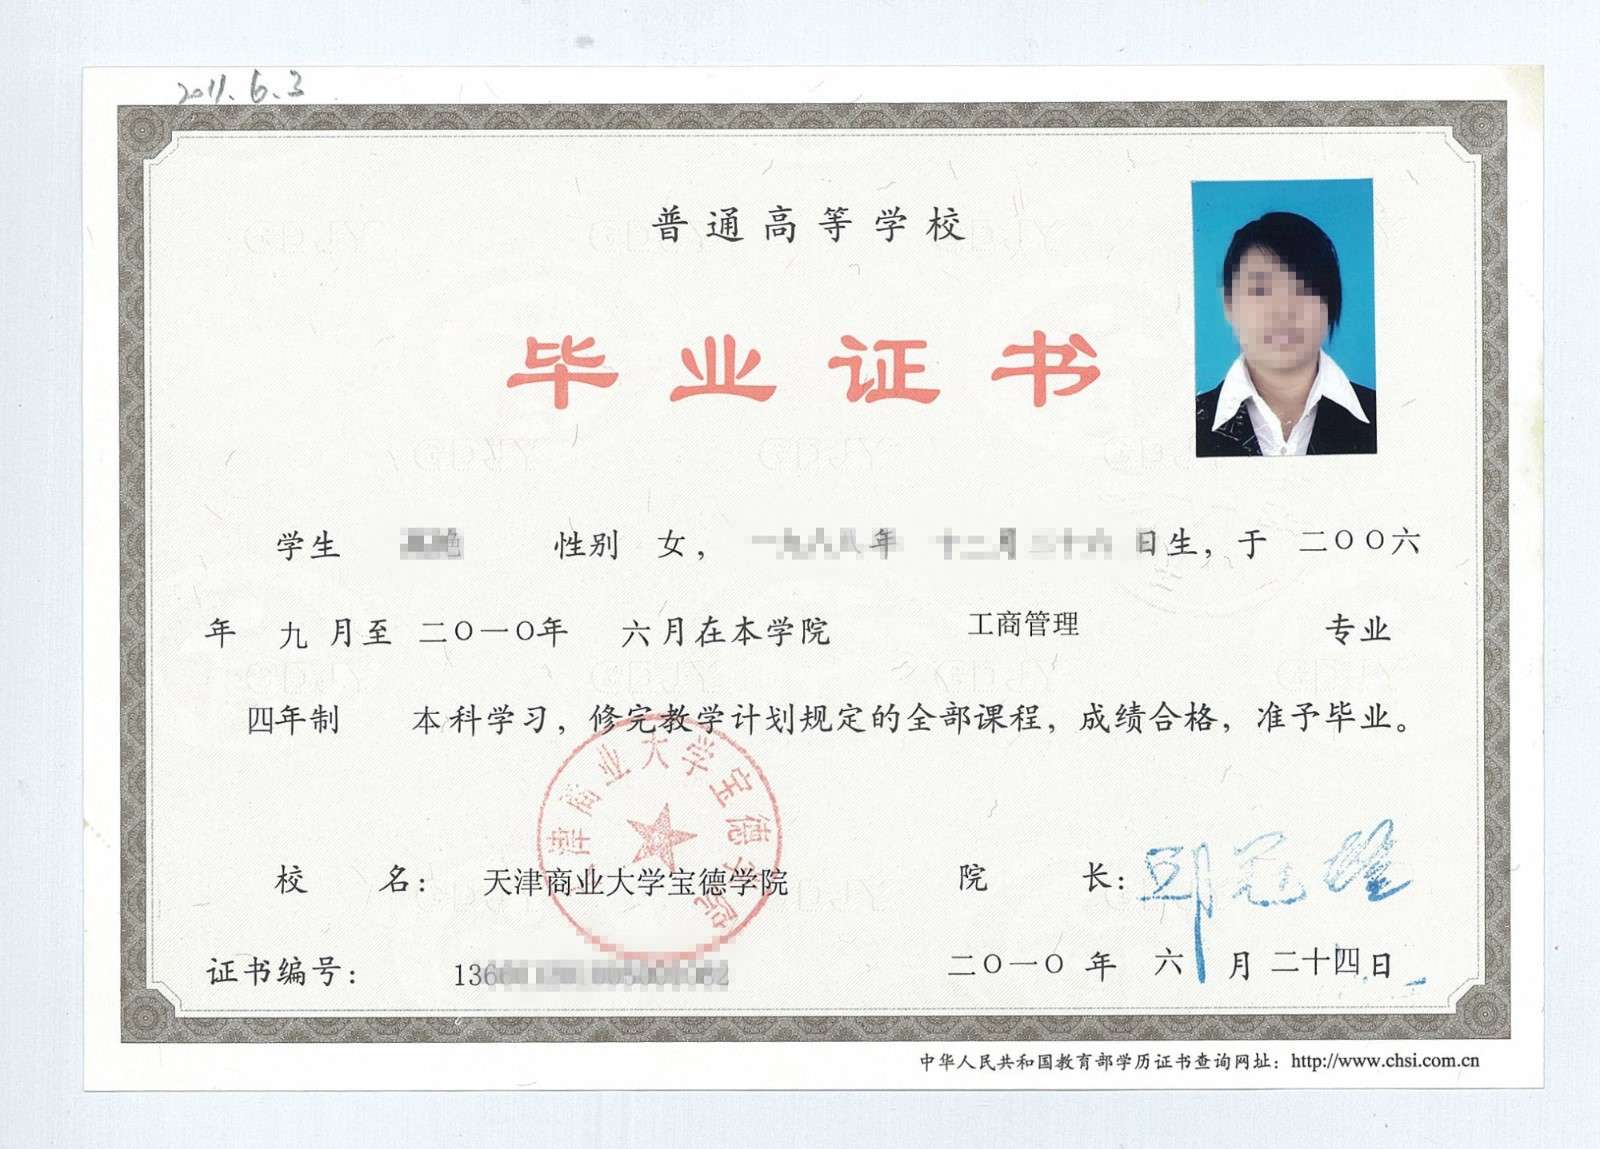 2011.6.3
普通高等学校
毕业证书
学生 性别 女， 日生，于 二〇〇六
年 九 月至 二〇一〇年 六月在本学院 工商管理 专业
四年制 本科学习，修完教学计划规定的全部课程，成绩合格，准予毕业。
天津商业大学宝德学院
校 名： 天津商业大学宝德学院 院 长：
证书编号： 二〇一〇 年 六 月 二十四日
中华人民共和国教育部学历证书查询网址：http://www.chsi.com.cn